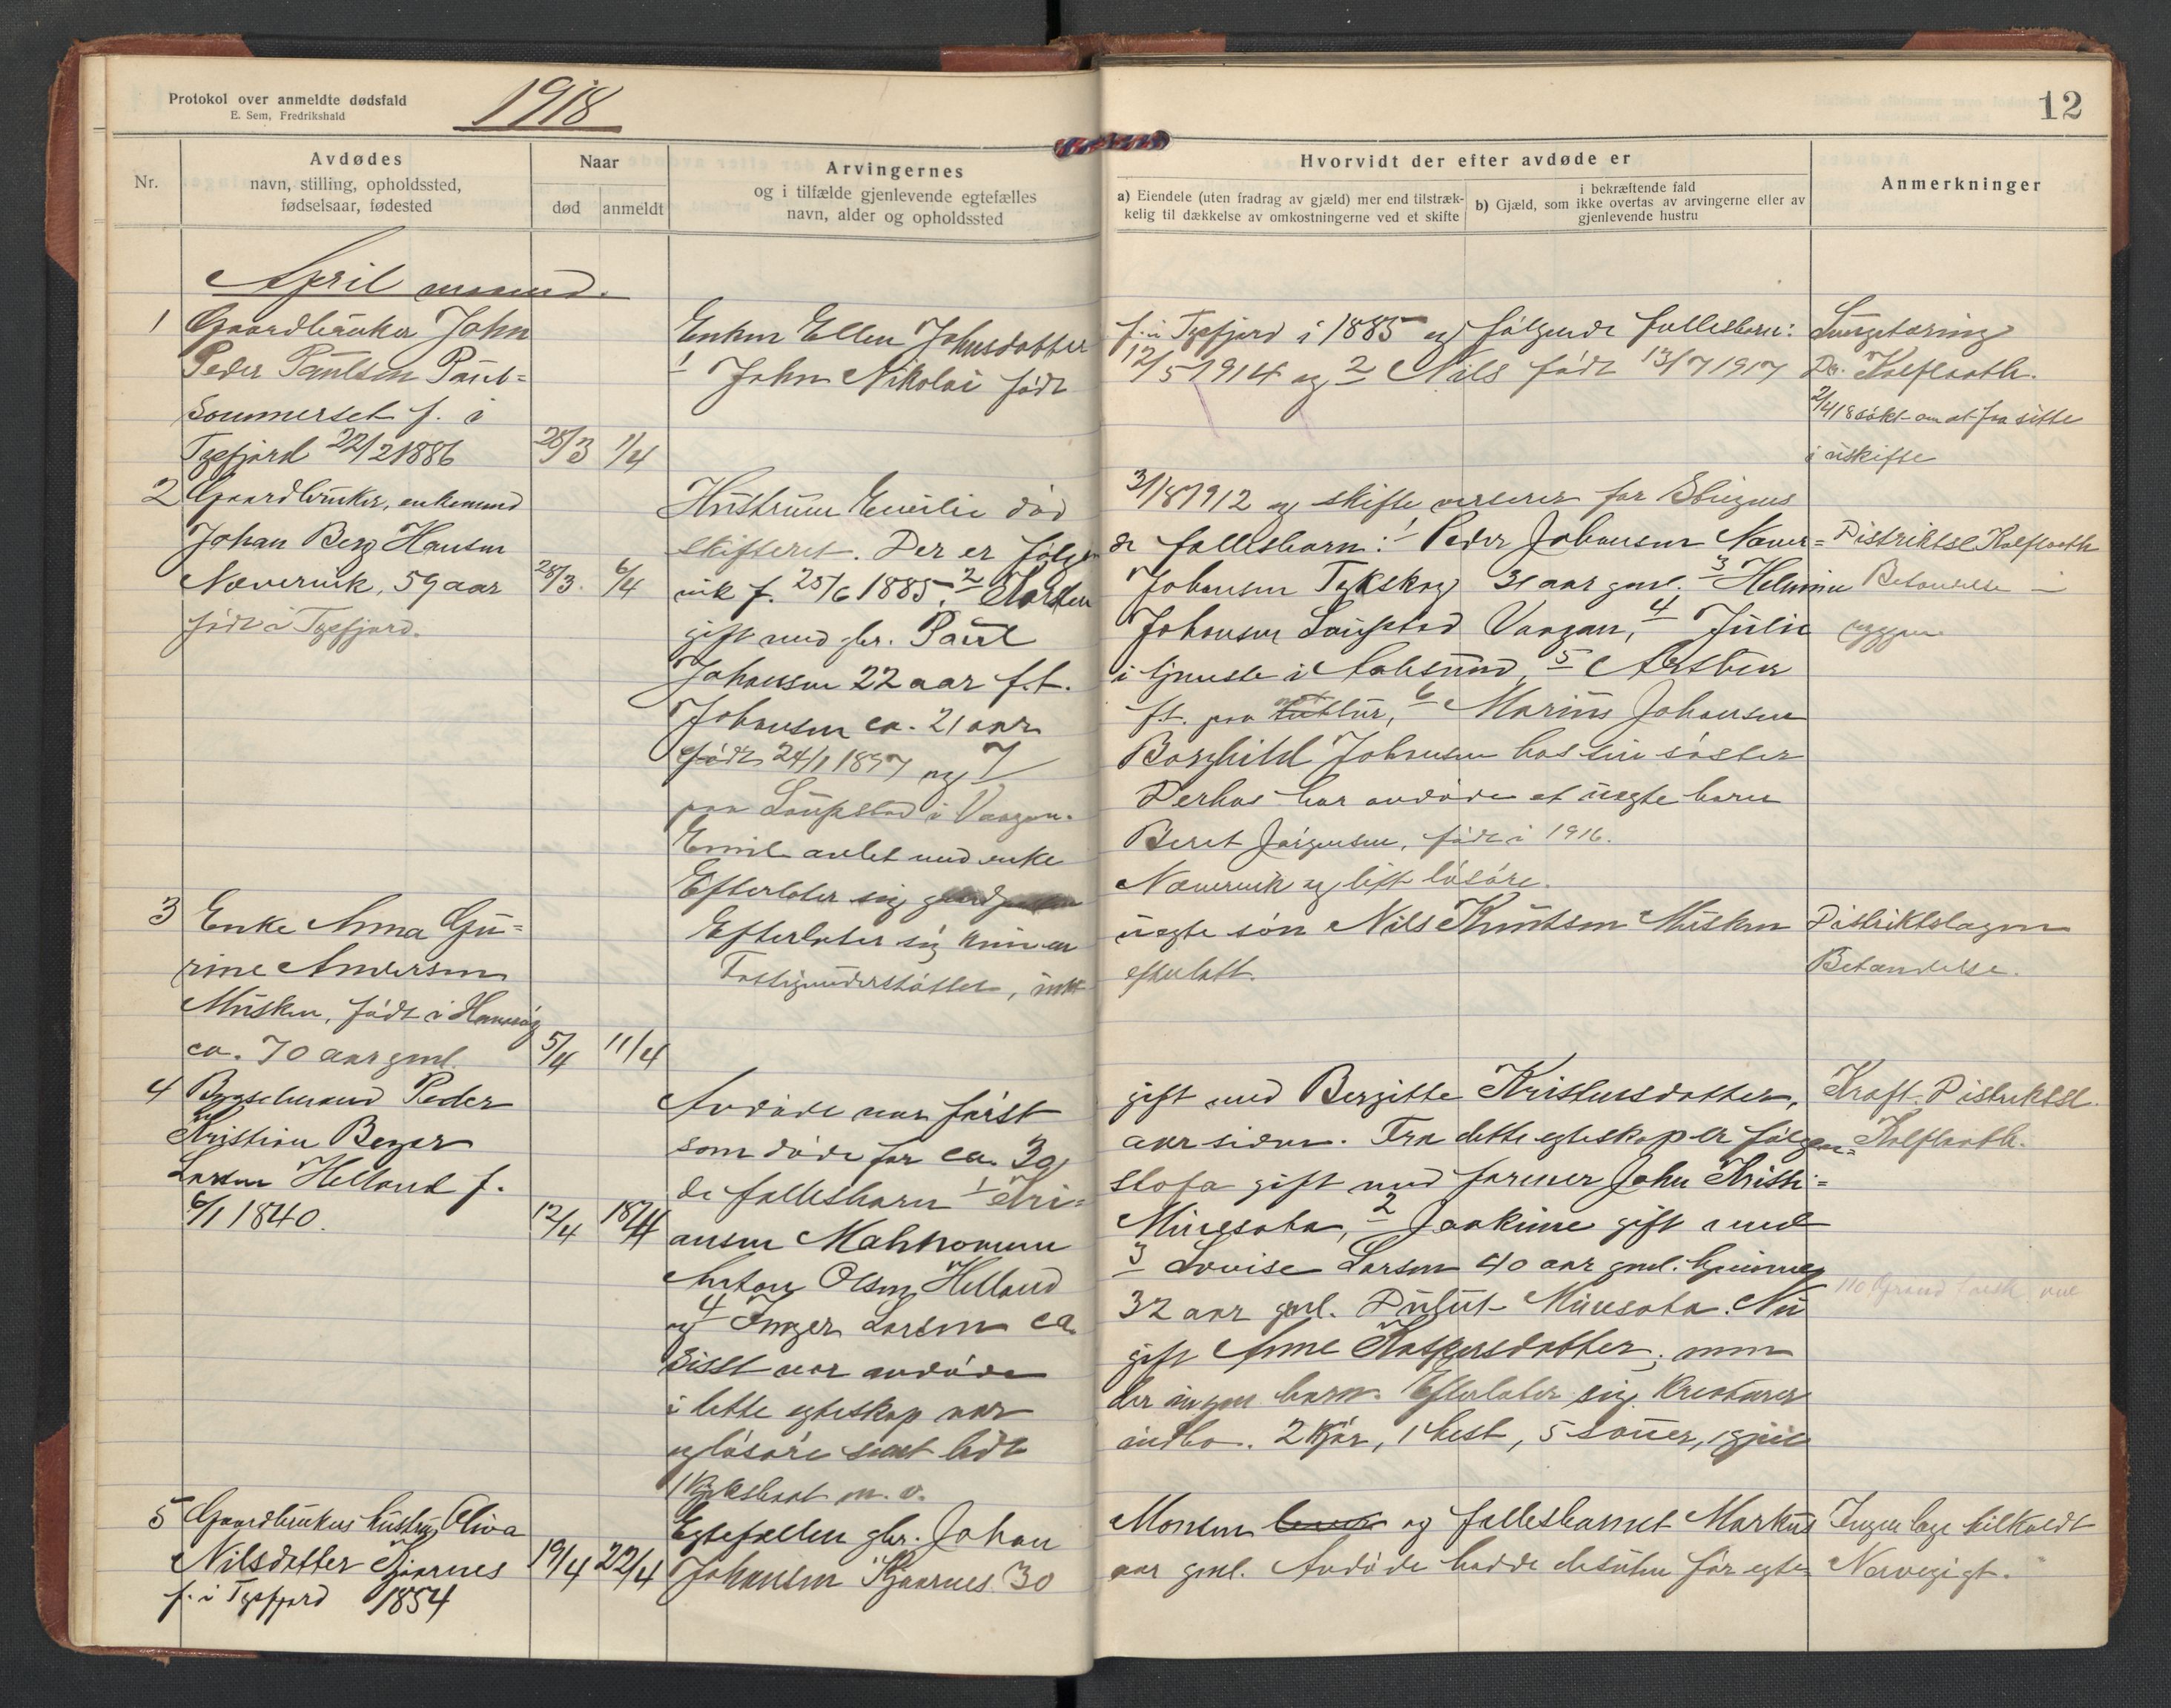 Protokol over anmeldte dødsfald
E. Sem, Fredrikshald
1918
12
Nr.
Avdødes
navn, stilling, opholdssted,
fødselsaar, fødested
Naar
død
anmeldt
Arvingernes
og i tilfælde gjenlevende egtefælles
navn, alder og opholdssted
Hvorvidt der efter avdøde er
a) Eiendele (uten fradrag av gjæld) mer end tilstræk-
kelig til dækkelse av omkostningerne ved et skifte
i bekræftende fald
b) Gjæld, som ikke overtas av arvingerne eller av
gjenlevende hustru
Anmerkninger
April maaned.
1 Gaardbruker John
Peder Paulsen Paul=
Sommerset f. i
Tysfjord 22/2 1886 28/3 1/4
Enken Ellen Johnsdatter f. i Tysfjord i 1885 og følgende fællesbarn:
1 John Nikolai født 12/5 1914 og 2 Nils født 13/7 1917
Lungetæring
Dr. Kolflaath.
2/4 18 søkt om at faa sitte
i uskifte
2 Gaardbruker, enkemand
Johan Berg Hansen
Nævervik, 59 aar 28/3. 6/4
født i Tysfjord.
Hustruen Emilie død 31/8 1912 og skifte verserer for Steigens
skifteret. Der er følgen
de fællesbarn: 1 Peder Johansen Næver=
vik f. 25/6 1885, 2
Johansen 31 aar gml. 3
gift med gbr. Paul Johansen Laupstad Vaagan, 4 Julie
Johansen 22 aar f.t. i tjeneste i 5
Johansen ca. 21 aar ft. paa 6 Marius Johansen
født 24/1 1897 og 7 Borghild Johansen hos sin søster
paa Laupstad i Vaagan. Derhos har avdøde et uegte barn
Emil avlet med enke Beret Jørgensen, født i 1916.
Efterlater sig Nævervik og litt løsøre.
Distriktsl Kolflaath
Betændelse i
ryggen
3 Enke Anna Gu=
rine Andersen
Musken, født i Hamarøy
ca. 70 aar gml. 5/4 11/4
Efterlater sig kun en uegte søn Nils Knutsen Musken
Fattigunderstøttet, intet efterlatt.
Distriktslægen
Betændelse.
4 Bygselmand Peder
Kristian Beyer
Larsen Helland f.
6/1 1840. 12/4 18/4
Avdøde var først gift med Bergitte
som døde for ca. 30 aar siden. Fra dette egteskap er følgen=
de fællesbarn 1 Kri=
stofa gift med farmer John Kristi=
ansen Minesota, 2 Joakime gift med
Anton Olsen Helland 3 Lovise Larsen 40 aar gml.
og 4 Inger Larsen ca. 32 aar gml. Dulut Minesota. Nu
sist var avdøde gift Anne Kaspersdatter, men
i dette egteskap var der ingen barn. Efterlater sig kreaturer
og løsøre samt litt indbo. 2 kjør, 1 hest, 5 sauer, 1 gjeit
m. v.
Kræft. Distriktsl.
Kolflaath.
5 Gaardbrukers hustru Oliva
Nilsdatter Kjaarnes 19/4 22/4
f. i Tysfjord 1854
Egtefællen gbr. Johan Monsen og fællesbarnet Markus
Johansen Kjaarnes 30 aar gml. Avdøde hadde desuten før egte
Ingen læge tilkaldt